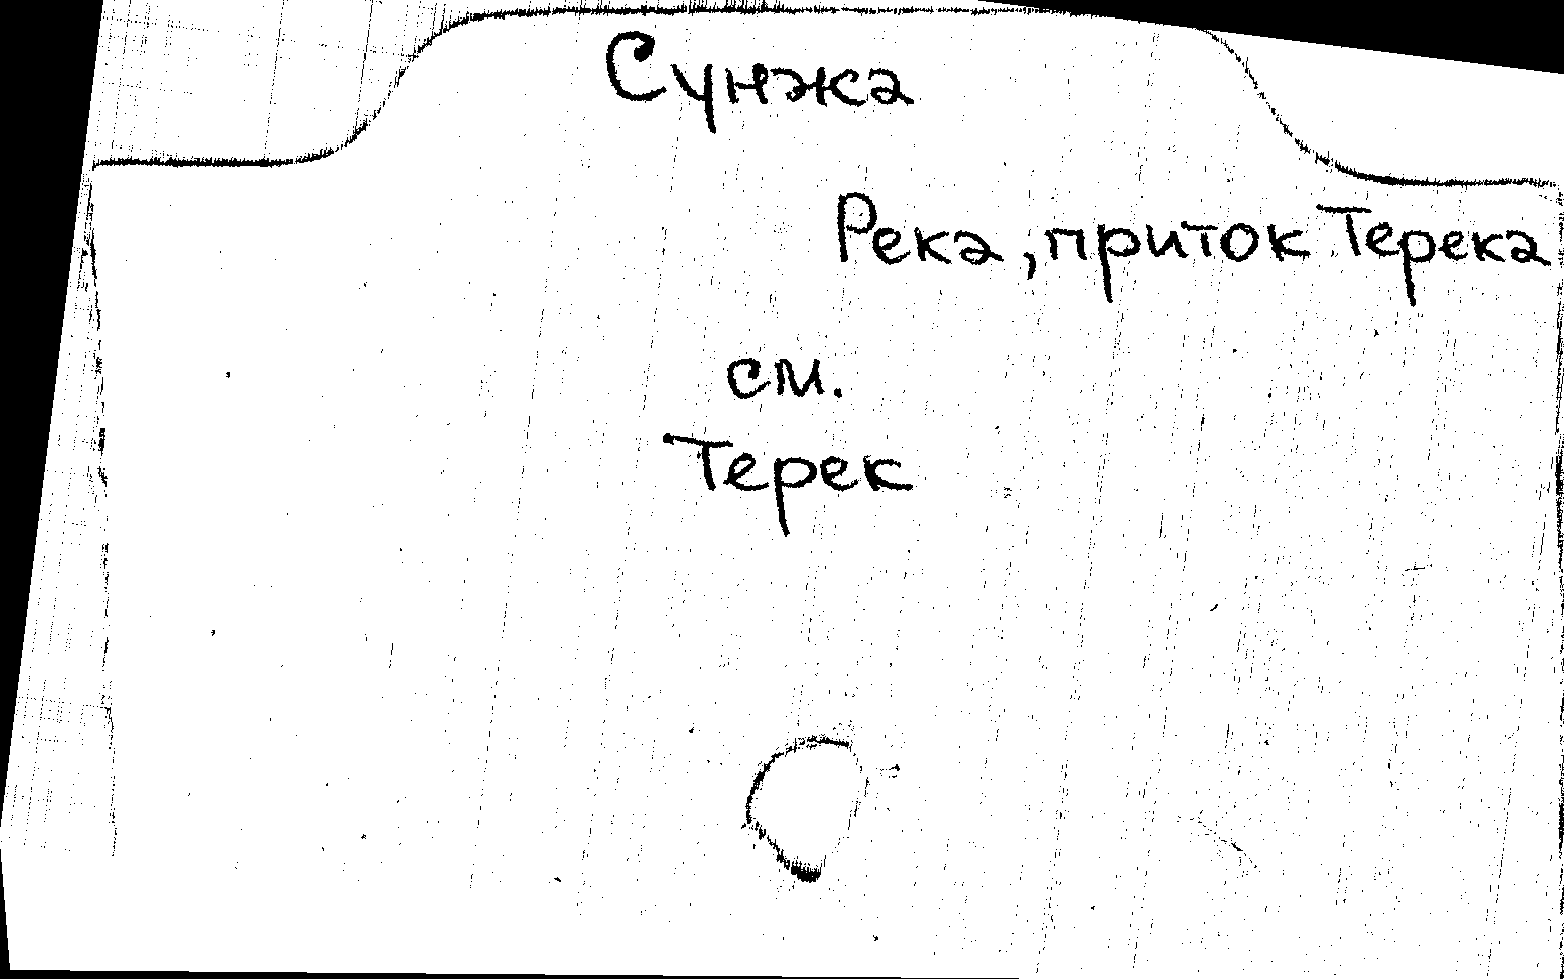 Сунжа
Река, приток Терека
см.
Терек